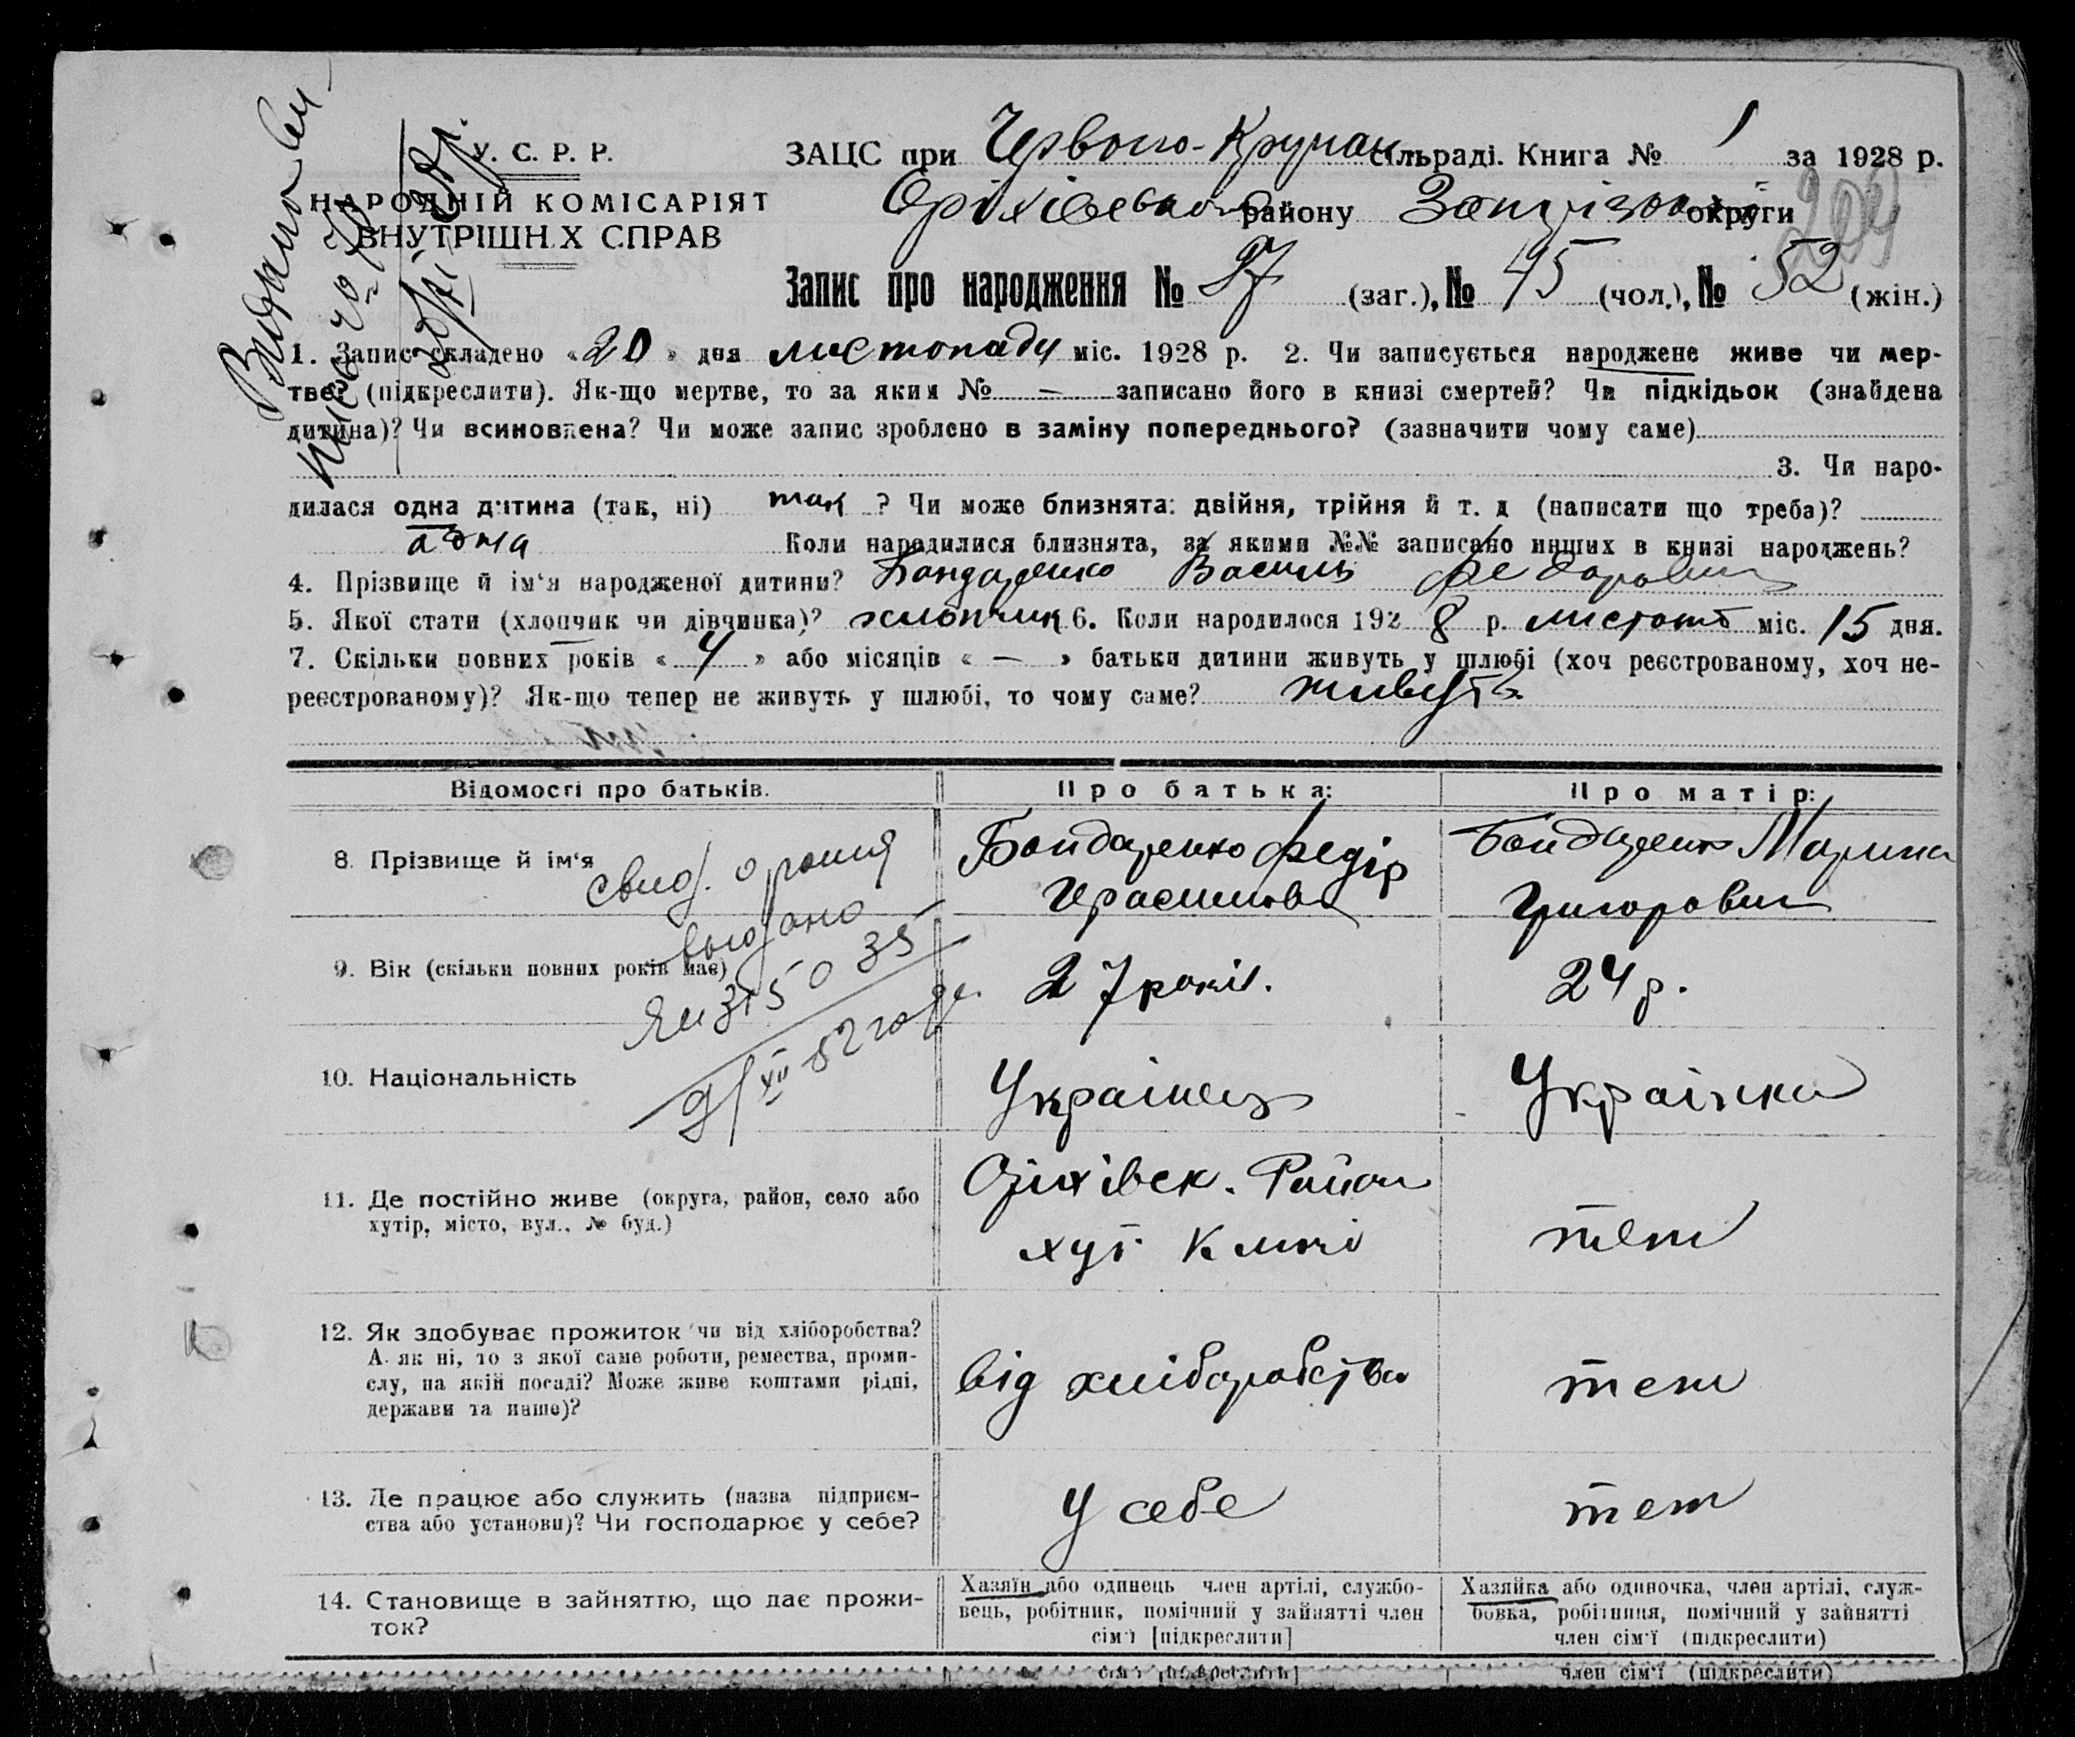 У. С. Р. Р.
НАРОДНІЙ КОМІСАРІЯТ
ВНУТРІШН.Х СПРАВ
ЗАЦС при Червоно-Крупан сільраді. Книга № 1 за 1928 р.
Оріхівського району Запорізької округи
204
Запис про народження № 97 (заг.), № 45 (чол.), № 52 (жін.)
1. Запис складено «20» дня листопаду міс. 1928 р. 2. Чи записується народжене живе чи мер-
тве? (підкреслити). Як-що мертве, то за яким № — записано його в книзі смертей? Чи підкідьок (знайдена
дитина)? Чи всиновлена? Чи може запис зроблено в заміну попереднього? (зазначити чому саме)
3. Чи наро-
дилася одна дитина (так, ні) так ? Чи може близнята: двійня, трійня й т. д (написати що треба)?
одна Коли народилися близнята, за якими №№ записано инших в книзі народжень?
4. Прізвище й ім'я народженої дитини? Бондаренко Василь Федорович
5. Якої стати (хлопчик чи дівчинка)? хлопчик 6. Коли народилося 1928 р. листопад міс. 15 дня.
7. Скільки повних років «4» або місяців « — » батьки дитини живуть у шлюбі (хоч реєстрованому, хоч не-
реєстрованому)? Як-що тепер не живуть у шлюбі, то чому саме? живуть
Відомості про батьків.
Про батька:
Про матір:
8. Прізвище й ім'я
Бондаренко Федір
Герасимов
Бондаренко Марина
Григорович
свид. о рожд
выдано
9. Вік (скільки повних років має)
27 років.
24 р.
10. Національність
Українець
Українка
11. Де постійно живе (округа, район, село або
хутір, місто, вул., № буд.)
Оріхівськ. Район
хут.
теж
12. Як здобуває прожиток чи від хліборобства?
А як ні, то з якої саме роботи, ремества, проми-
слу, на якій посаді? Може живе коштами рідні,
держави та инше)?
від хліборобства
теж
13. Де працює або служить (назва підприєм-
ства або установи)? Чи господарює у себе?
У себе
теж
14. Становище в зайняттю, що дає прожи-
ток?
Хазяїн або одинець член артілі, службо-
вець, робітник, помічний у зайнятті член
сім'ї [підкреслити]
Хазяйка або одиночка, член артілі, служ-
бовка, робітниця, помічний у зайнятті
член сім'ї (підкреслити)
член сім'ї (підкреслити)